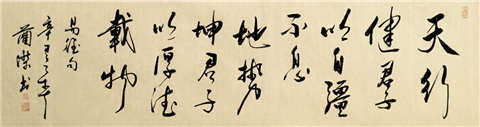 天行
健君子
以自彊
不息
地势
坤君子
以厚德
載物
易經句
辛丑年
蘭傑书